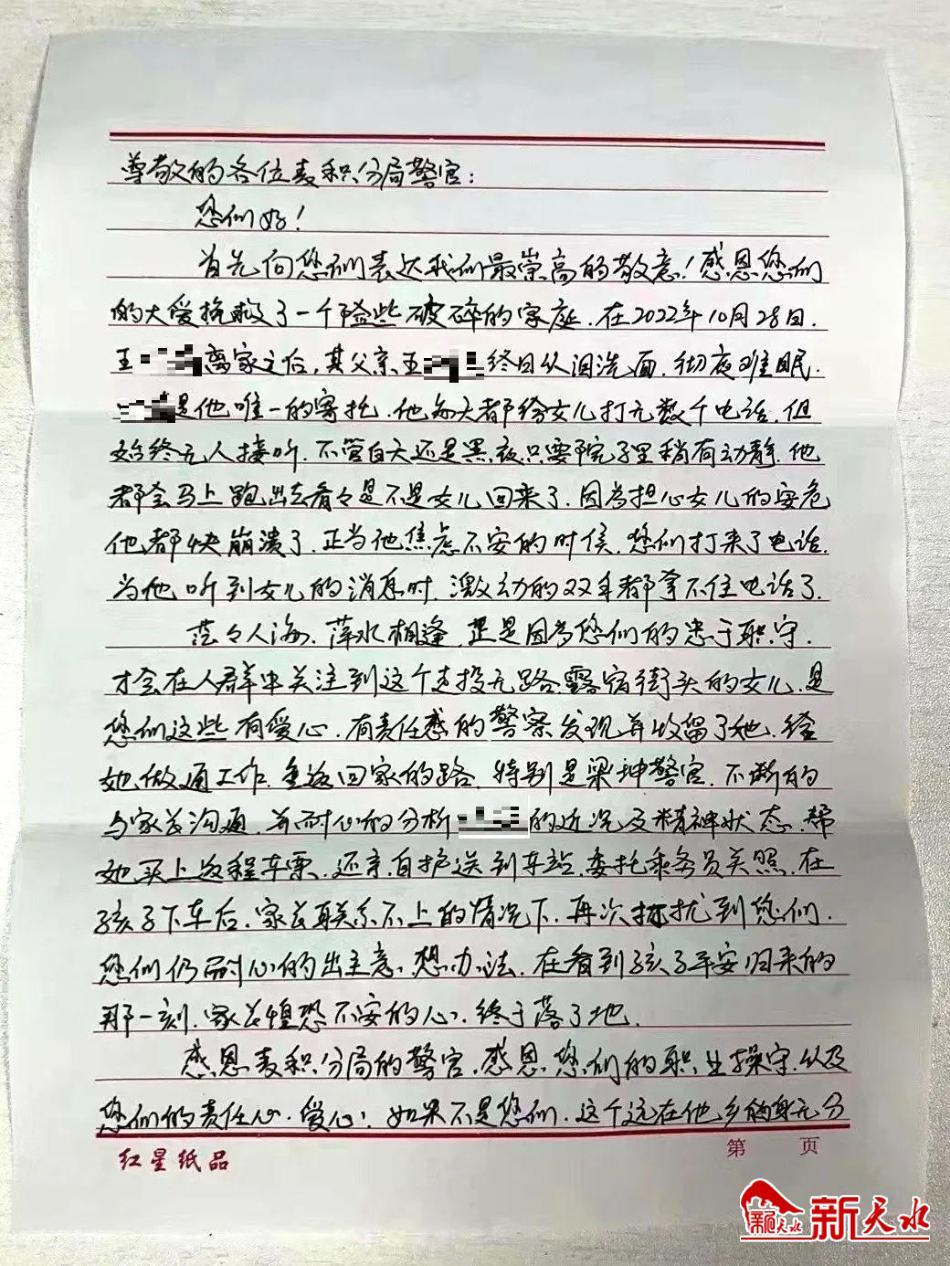 尊敬的各位麦积分局警官：
您们好！
首先向您们表达我们最崇高的敬意！感恩您们
的大爱挽救了一个险些破碎的家庭．在2022年10月28日．
王离家之后，其父亲王终日以泪洗面．彻夜难眠．
是他唯一的寄托．他每天都给女儿打无数个电话．但
始终无人接听．不管白天还是黑夜只要院子里稍有动静．他
都会马上跑出去看々是不是女儿回来了．因为担心女儿的安危
他都快崩溃了．正当他焦虑不安的时候．您们打来了电话．
当他听到女儿的消息时．激动的双手都拿不住电话了．
茫々人海．萍水相逢．正是因为您们的忠于职守．
才会在人群中关注到这个走投无路．露宿街头的女儿．是
您们这些有爱心．有责任感的警察发现并收留了她．给
她做通工作．重返回家的路．特别是梁坤警官．不断的
与家长沟通．并耐心的分析的近况及精神状态．帮
她买上返程车票．还亲自护送到车站．委托乘务员关照．在
孩子下车后．家长联系不上的情况下．再次打扰到您们．
您们仍耐心的出主意、想办法．在看到孩子平安归来的
那一刻．家长惶恐不安的心．终于落了地．
感恩麦积分局的警官．感恩您们的职业操守．以及
您们的责任心．爱心．如果不是您们．这个远在他乡的身无分
红星纸品
第 页
新天水
新天水